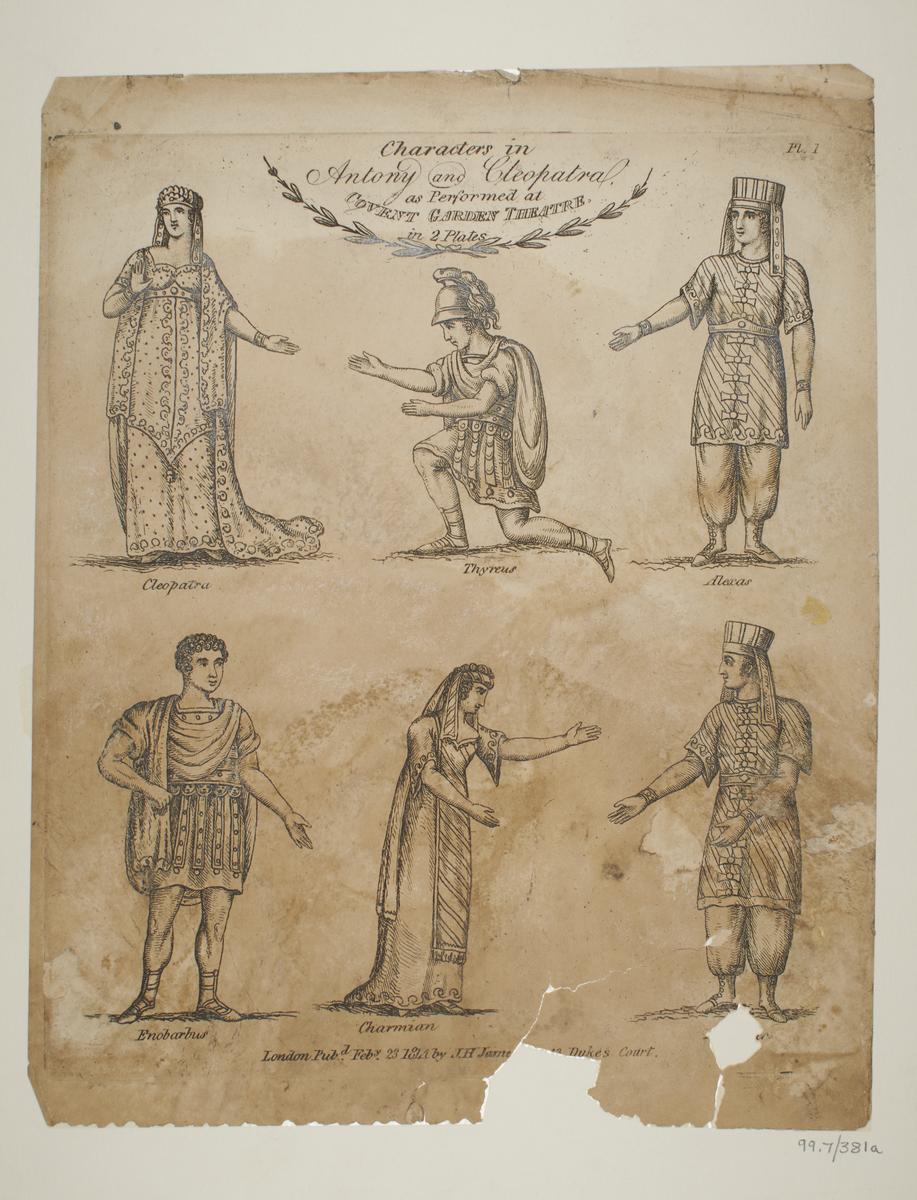 Characters in
Pl. 1
Antony and Cleopatra,
as Performed at
COVENT GARDEN THEATRE,
in 2 Plates
Cleopatra
Thyreus
Alexas
Enobarbus
Charmian
London Pub.d Feb.y 23 by J.H Jame Dukes Court.
99.7/381a